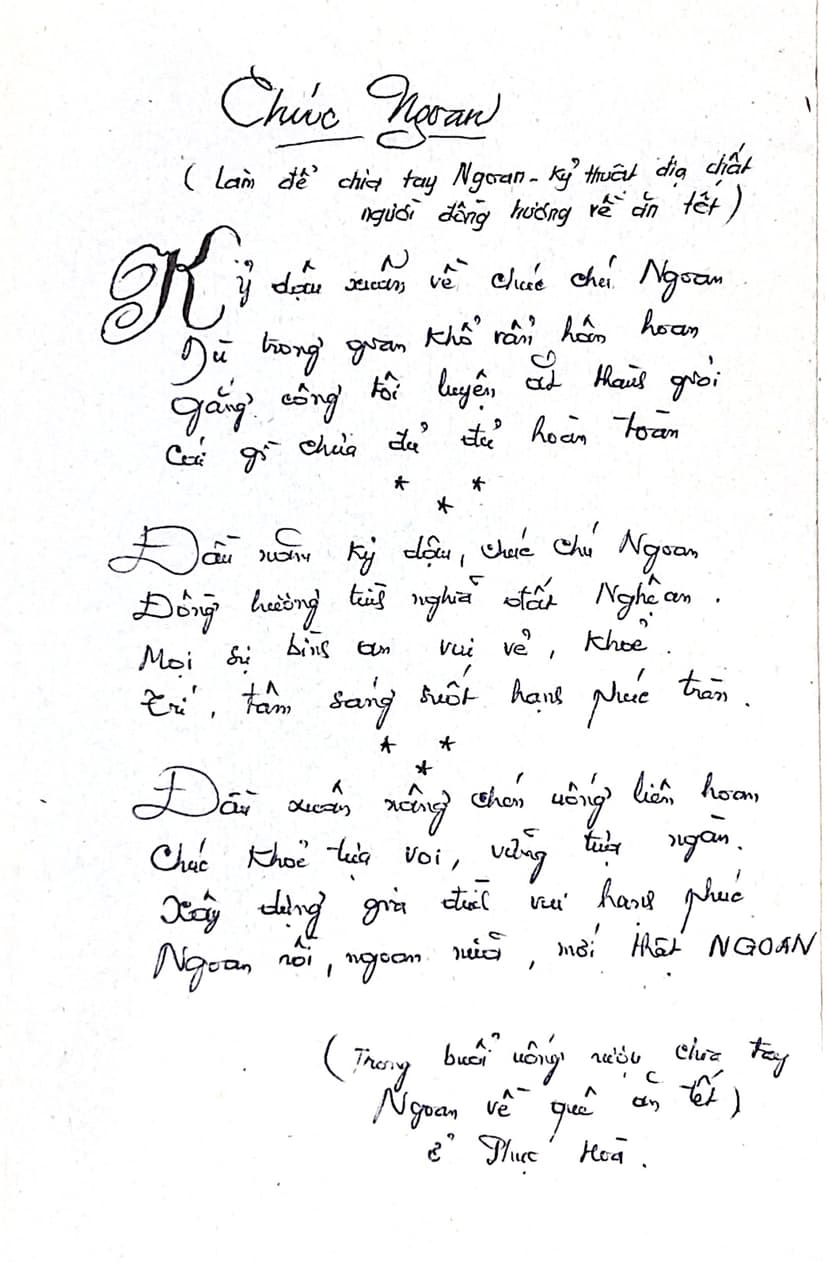 Chúc Ngoan
( Làm để chia tay Ngoan - kỷ thuật địa chất
người đồng hương về ăn tết )
Kỷ dậu xuân về chúc chú Ngoan
Dù trong gian khổ vẫn hân hoan
Gắng công tôi luyện ắt thành giỏi
Cái gì chưa đủ đủ hoàn toàn
* * *
Đầu xuân kỷ dậu, chúc chú Ngoan
Đồng hương tình nghĩa đất Nghệ an .
Mọi sự bình an vui vẻ, khoẻ .
Trí , tâm sáng suốt hạnh phúc tràn .
* * *
Đầu xuân nâng chén uống liên hoan
Chúc khoẻ tựa voi, vững tựa ngàn.
Xây dựng gia đình vui hạnh phúc
Ngoan rồi, ngoan nữa , mới thật NGOAN
( Trong buổi uống rượu chia tay
Ngoan về quê ăn tết )
ở Phục Hoà .